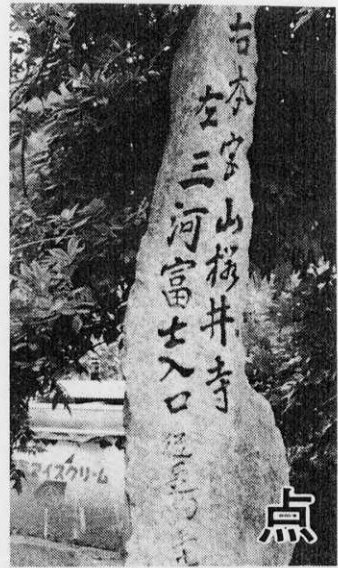 右本宮山桜井寺
左三河富士入口
アイスクリーム
点